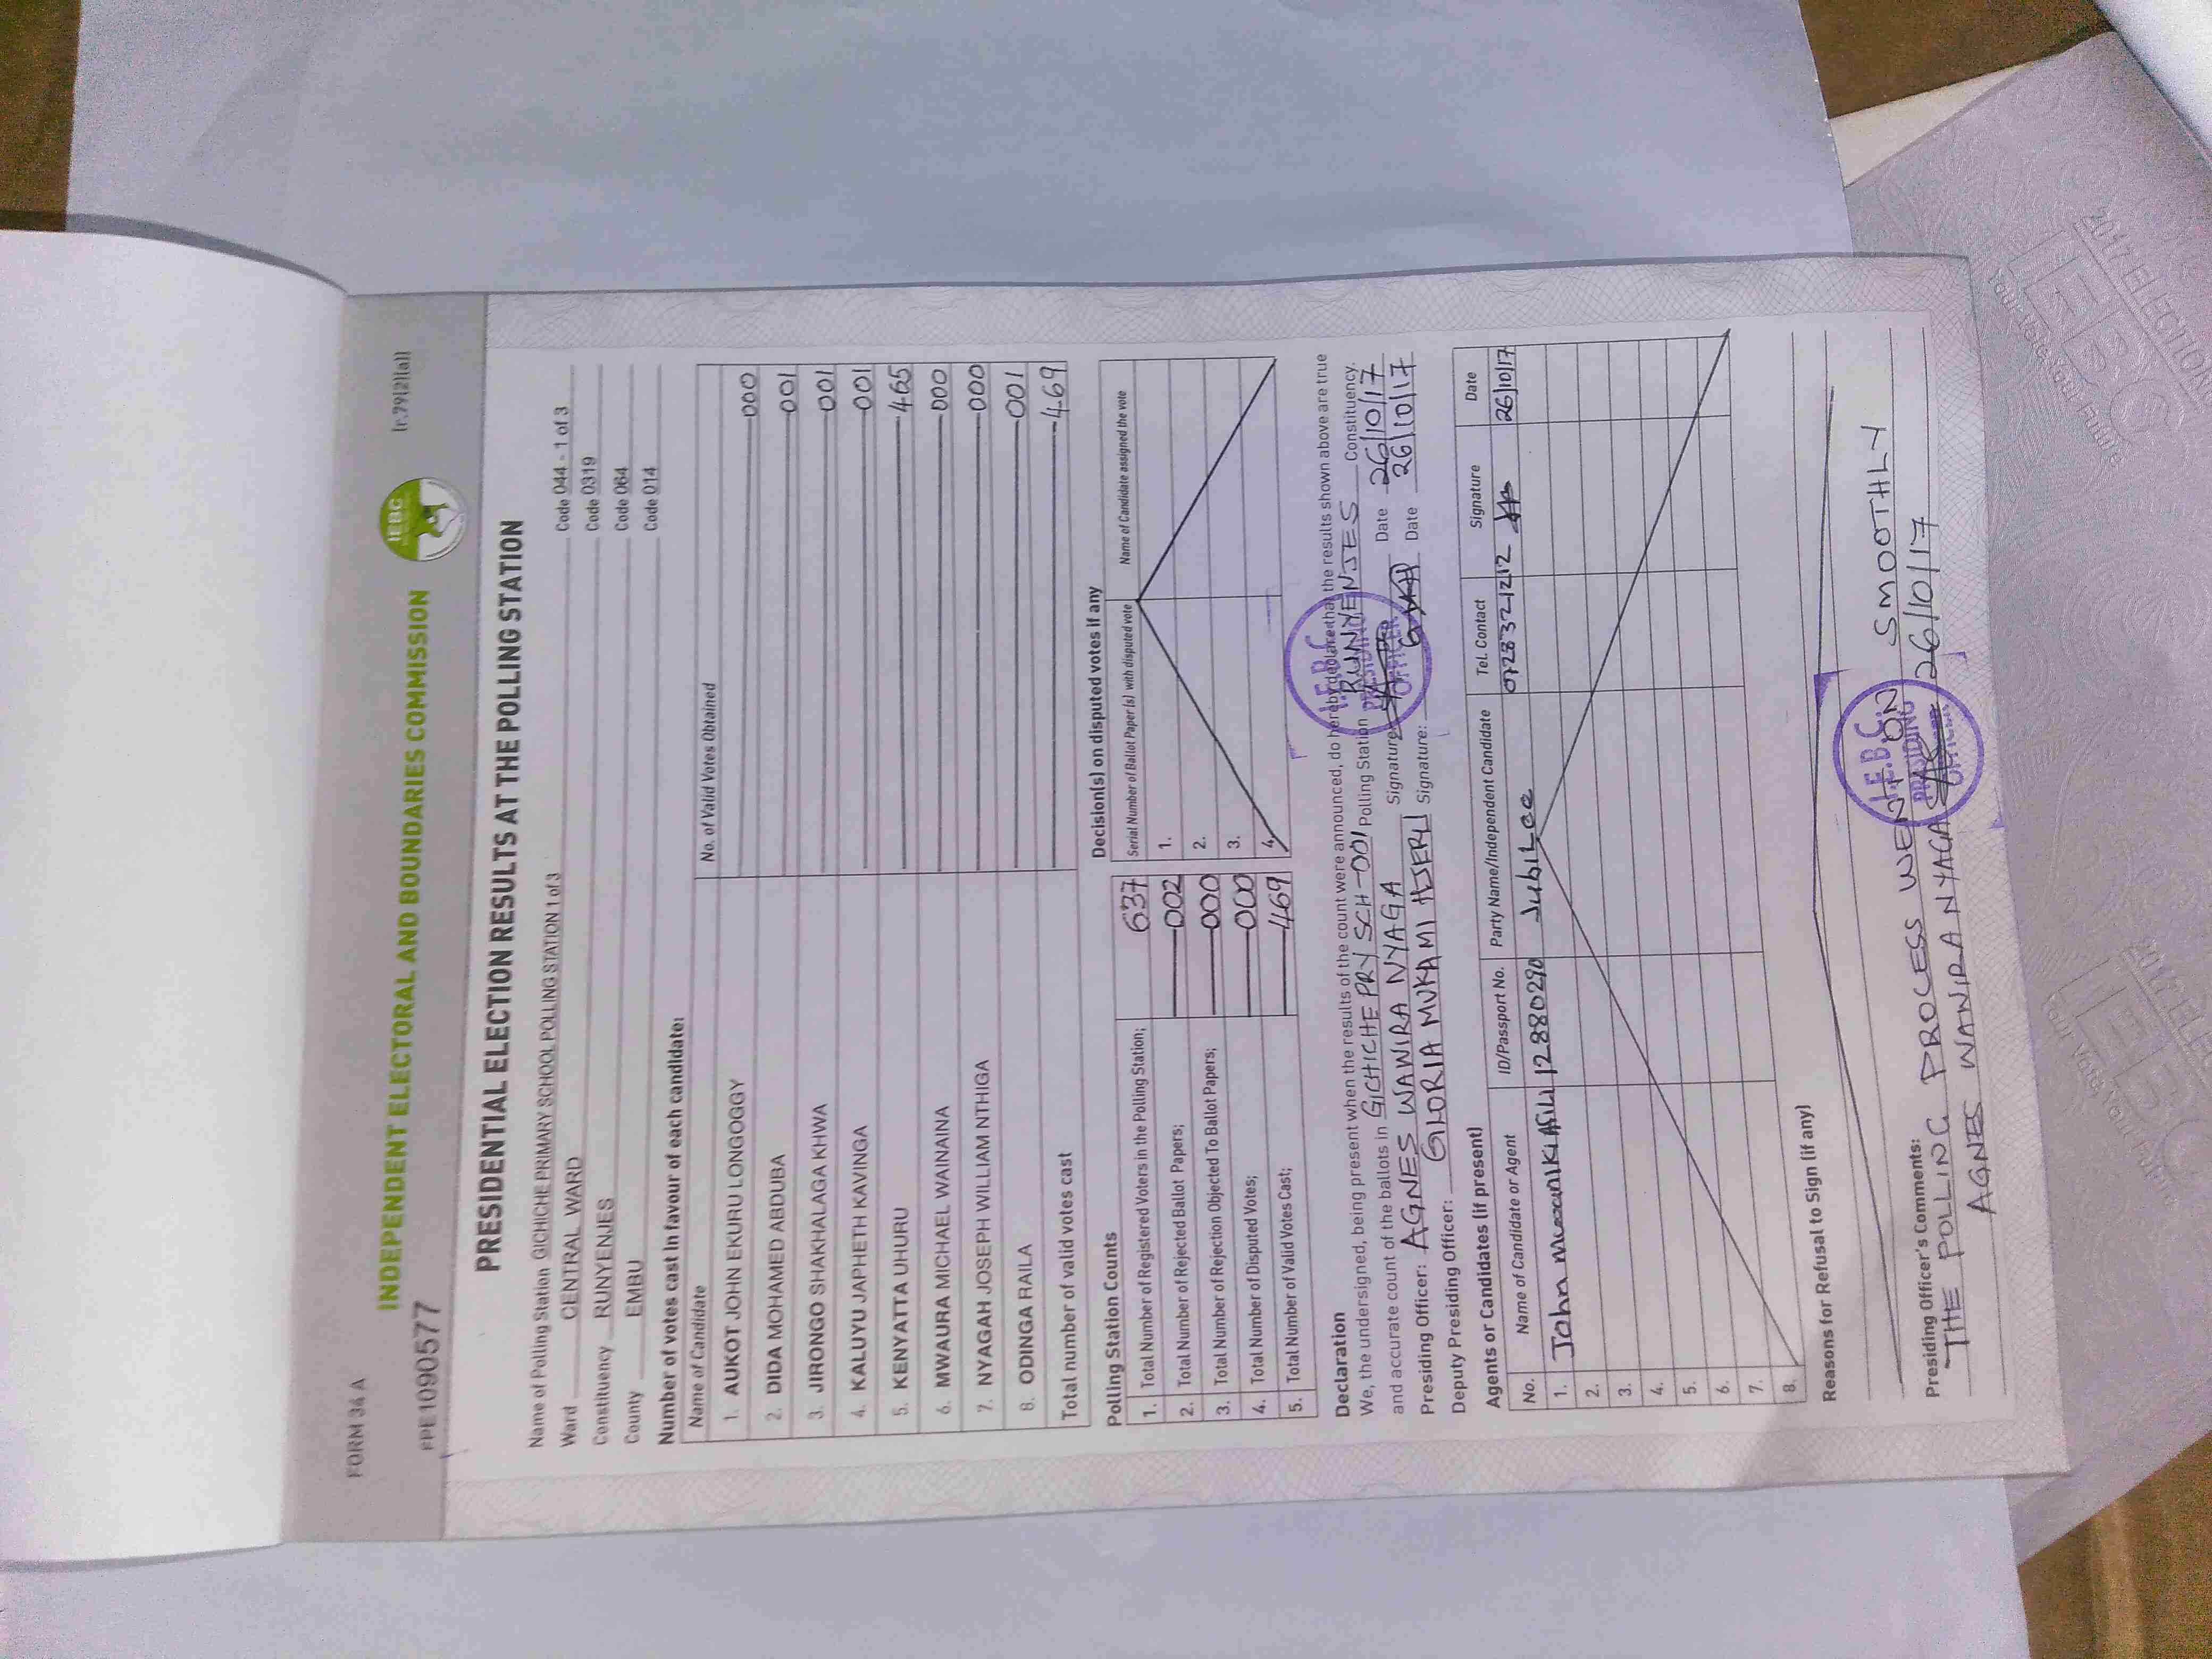 FORM 34 A
(r.79(2)(a))
INDEPENDENT ELECTORAL AND BOUNDARIES COMMISSION
IEBC
PPE 1090577
PRESIDENTIAL ELECTION RESULTS AT THE POLLING STATION
Name of Polling Station GICHICHE PRIMARY SCHOOL POLLING STATION 1 of 3 Code 044 - 1 of 3
Ward CENTRAL WARD Code 0319
Constituency RUNYENJES Code 064
County EMBU Code 014
Number of votes cast in favour of each candidate:
Name of Candidate No. of Valid Votes Obtained
1. AUKOT JOHN EKURU LONGOGGY 000
2. DIDA MOHAMED ABDUBA 001
3. JIRONGO SHAKHALAGA KHWA 001
4. KALUYU JAPHETH KAVINGA 001
5. KENYATTA UHURU 465
6. MWAURA MICHAEL WAINAINA 000
7. NYAGAH JOSEPH WILLIAM NTHIGA 000
8. ODINGA RAILA 001
Total number of valid votes cast 469
Polling Station Counts
1. Total Number of Registered Voters in the Polling Station; 637
2. Total Number of Rejected Ballot Papers; 002
3. Total Number of Rejection Objected To Ballot Papers; 000
4. Total Number of Disputed Votes; 000
5. Total Number of Valid Votes Cast; 469
Decision(s) on disputed votes if any
Serial Number of Ballot Paper (s) with disputed vote Name of Candidate assigned the vote
1.
2.
3.
4.
Declaration
We, the undersigned, being present when the results of the count were announced, do hereby declare that the results shown above are true
and accurate count of the ballots in GICHICHE PRY SCH-001 Polling Station RUNYENJES Constituency.
Presiding Officer: AGNES WAWIRA NYAGA Signature: Date 26/10/17
Deputy Presiding Officer: GLORIA MUKAMI NJERU Signature: Date 26/10/17
I.E.B.C
PRESIDING
OFFICER
Agents or Candidates (if present)
No. Name of Candidate or Agent ID/Passport No. Party Name/Independent Candidate Tel. Contact Signature Date
1. John 12880290 Jubilee 0728321212 26/10/17
2.
3.
4.
5.
6.
7.
8.
Reasons for Refusal to Sign (if any)
Presiding Officer's Comments:
THE POLLING PROCESS WENT ON SMOOTHLY
AGNES WANIRA NYAGA 26/10/17
I.E.B.C.
PRESIDING
OFFICER
2017 ELECTION
IEBC
Your Vote, Your Future